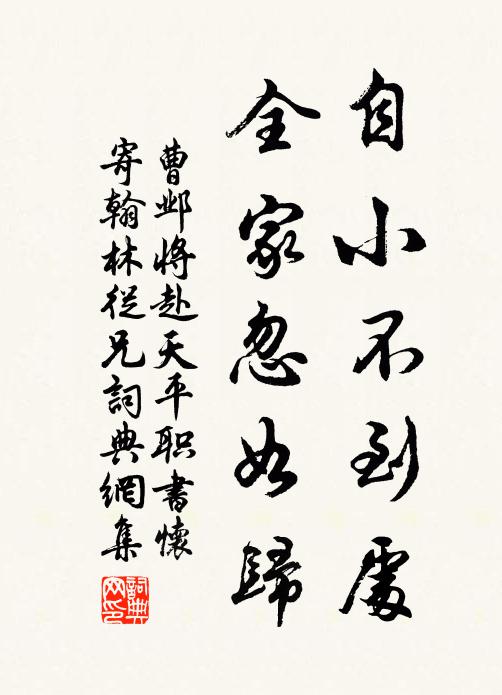 自小不到處
全家忽如歸
曹邺将赴天平职書懷
寄翰林從兄詞典網集
詞典網印